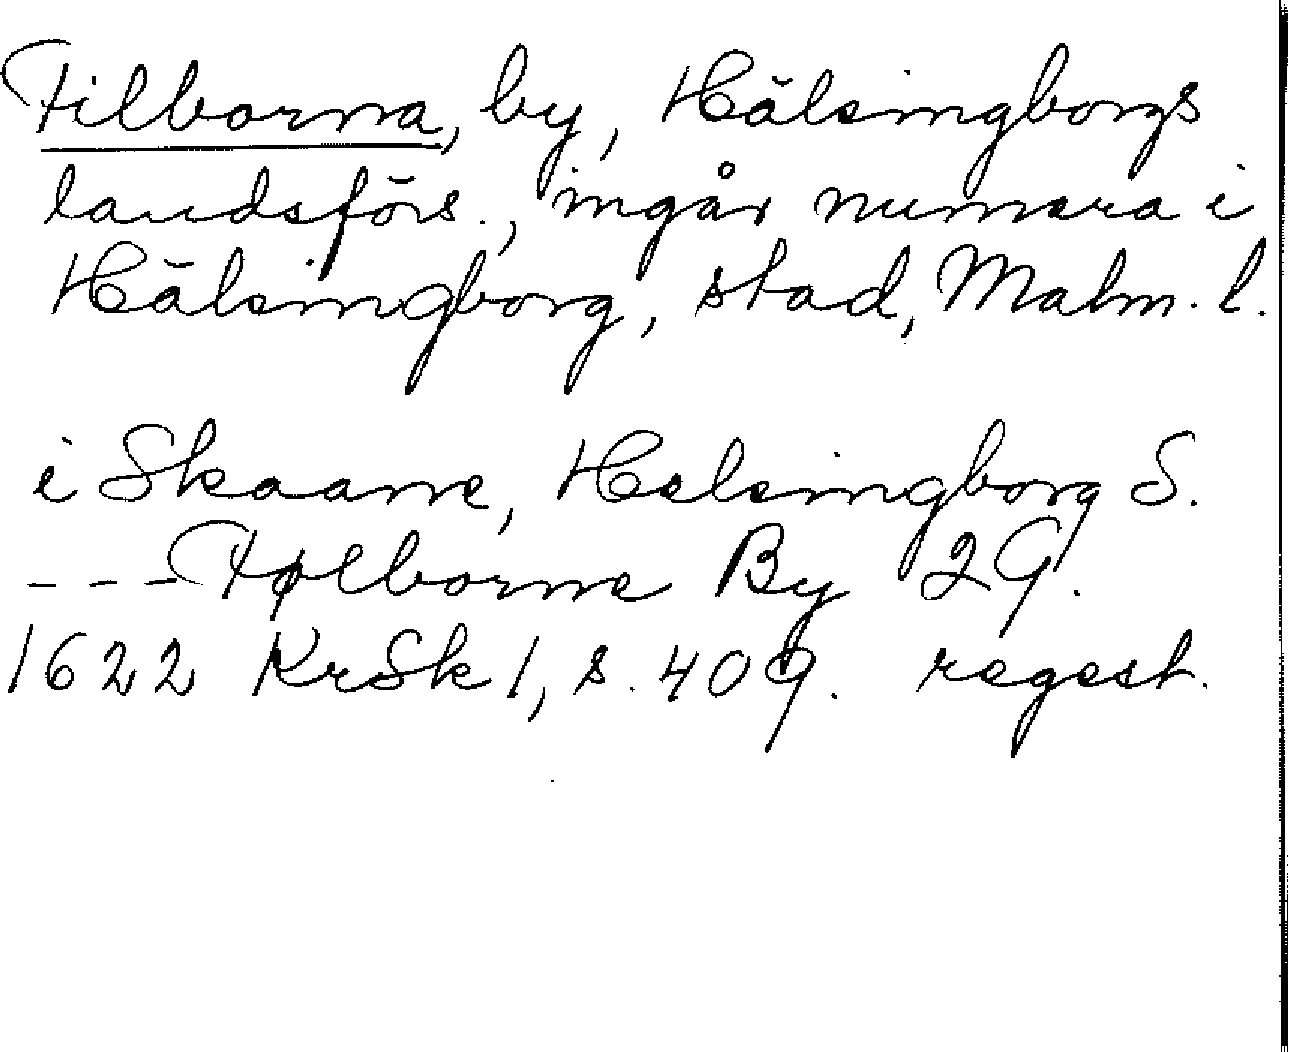 Filborna, by, Hälsingborgs
landsförs., ingår numera i
Hälsingborg, stad, Malm. l.
i Skaane, Helsingborg S.
--- Følborne By 2 G.
1622 KrSk 1, s. 409. regest.